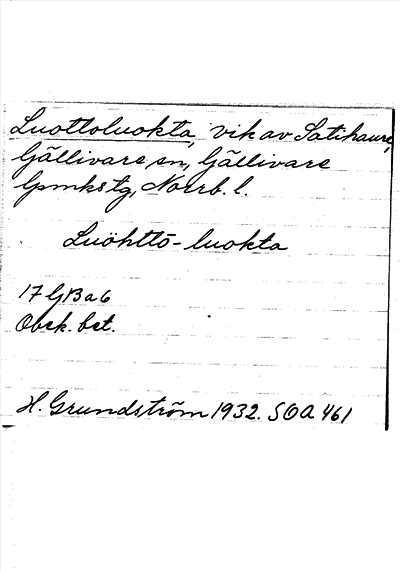 Luottoluokta, vik av Satihaure,
Gällivare sn, Gällivare
lpmkstg, Norrb. l.
Luöhttō-luokta
17 G Ba 6
Obek. bet.
H. Grundström 1932. SOA 461